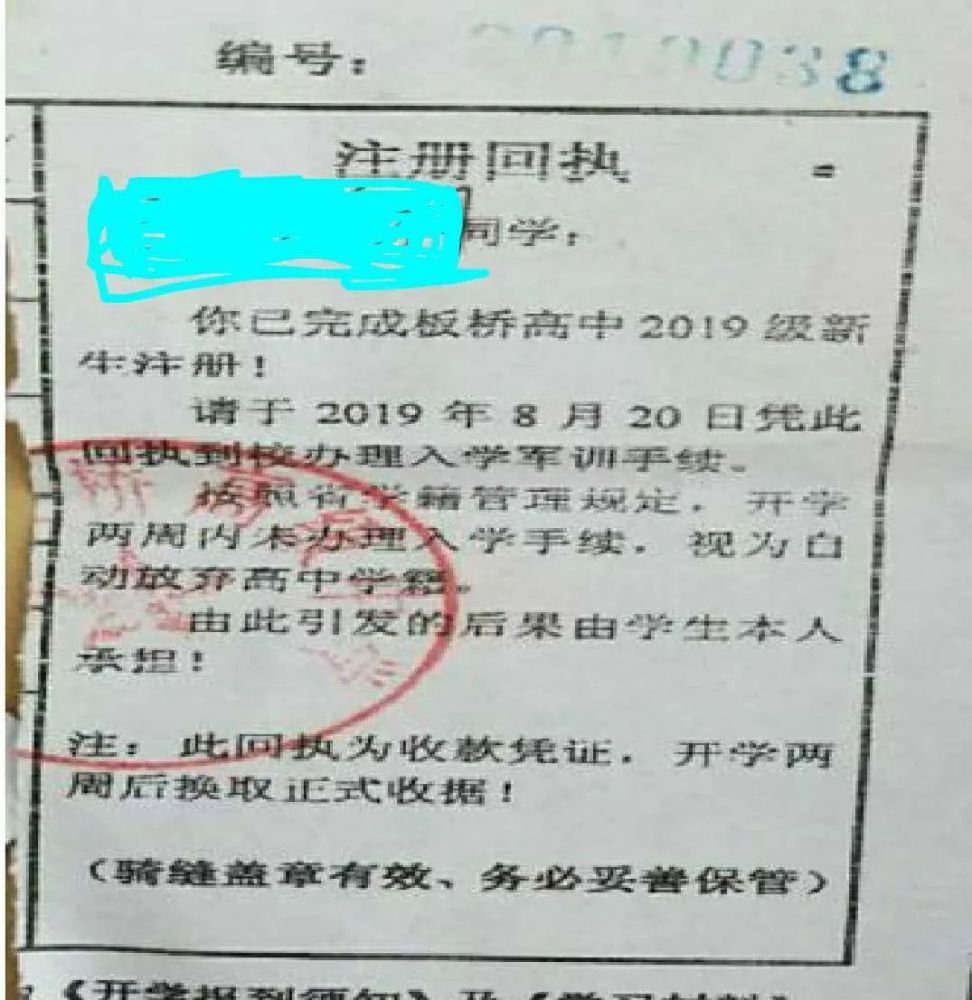 编号：038
注册回执
同学：
你已完成板桥高中2019级新
生注册！
请于2019年8月20日凭此
回执到校办理入学军训手续。
按照省学籍管理规定，开学
两周内未办理入学手续，视为自
动放弃高中学籍。
由此引发的后果由学生本人
承担！
注：此回执为收款凭证，开学两
周后换取正式收据！
（骑缝盖章有效、务必妥善保管）
《开学报到须知》及《学习材料》